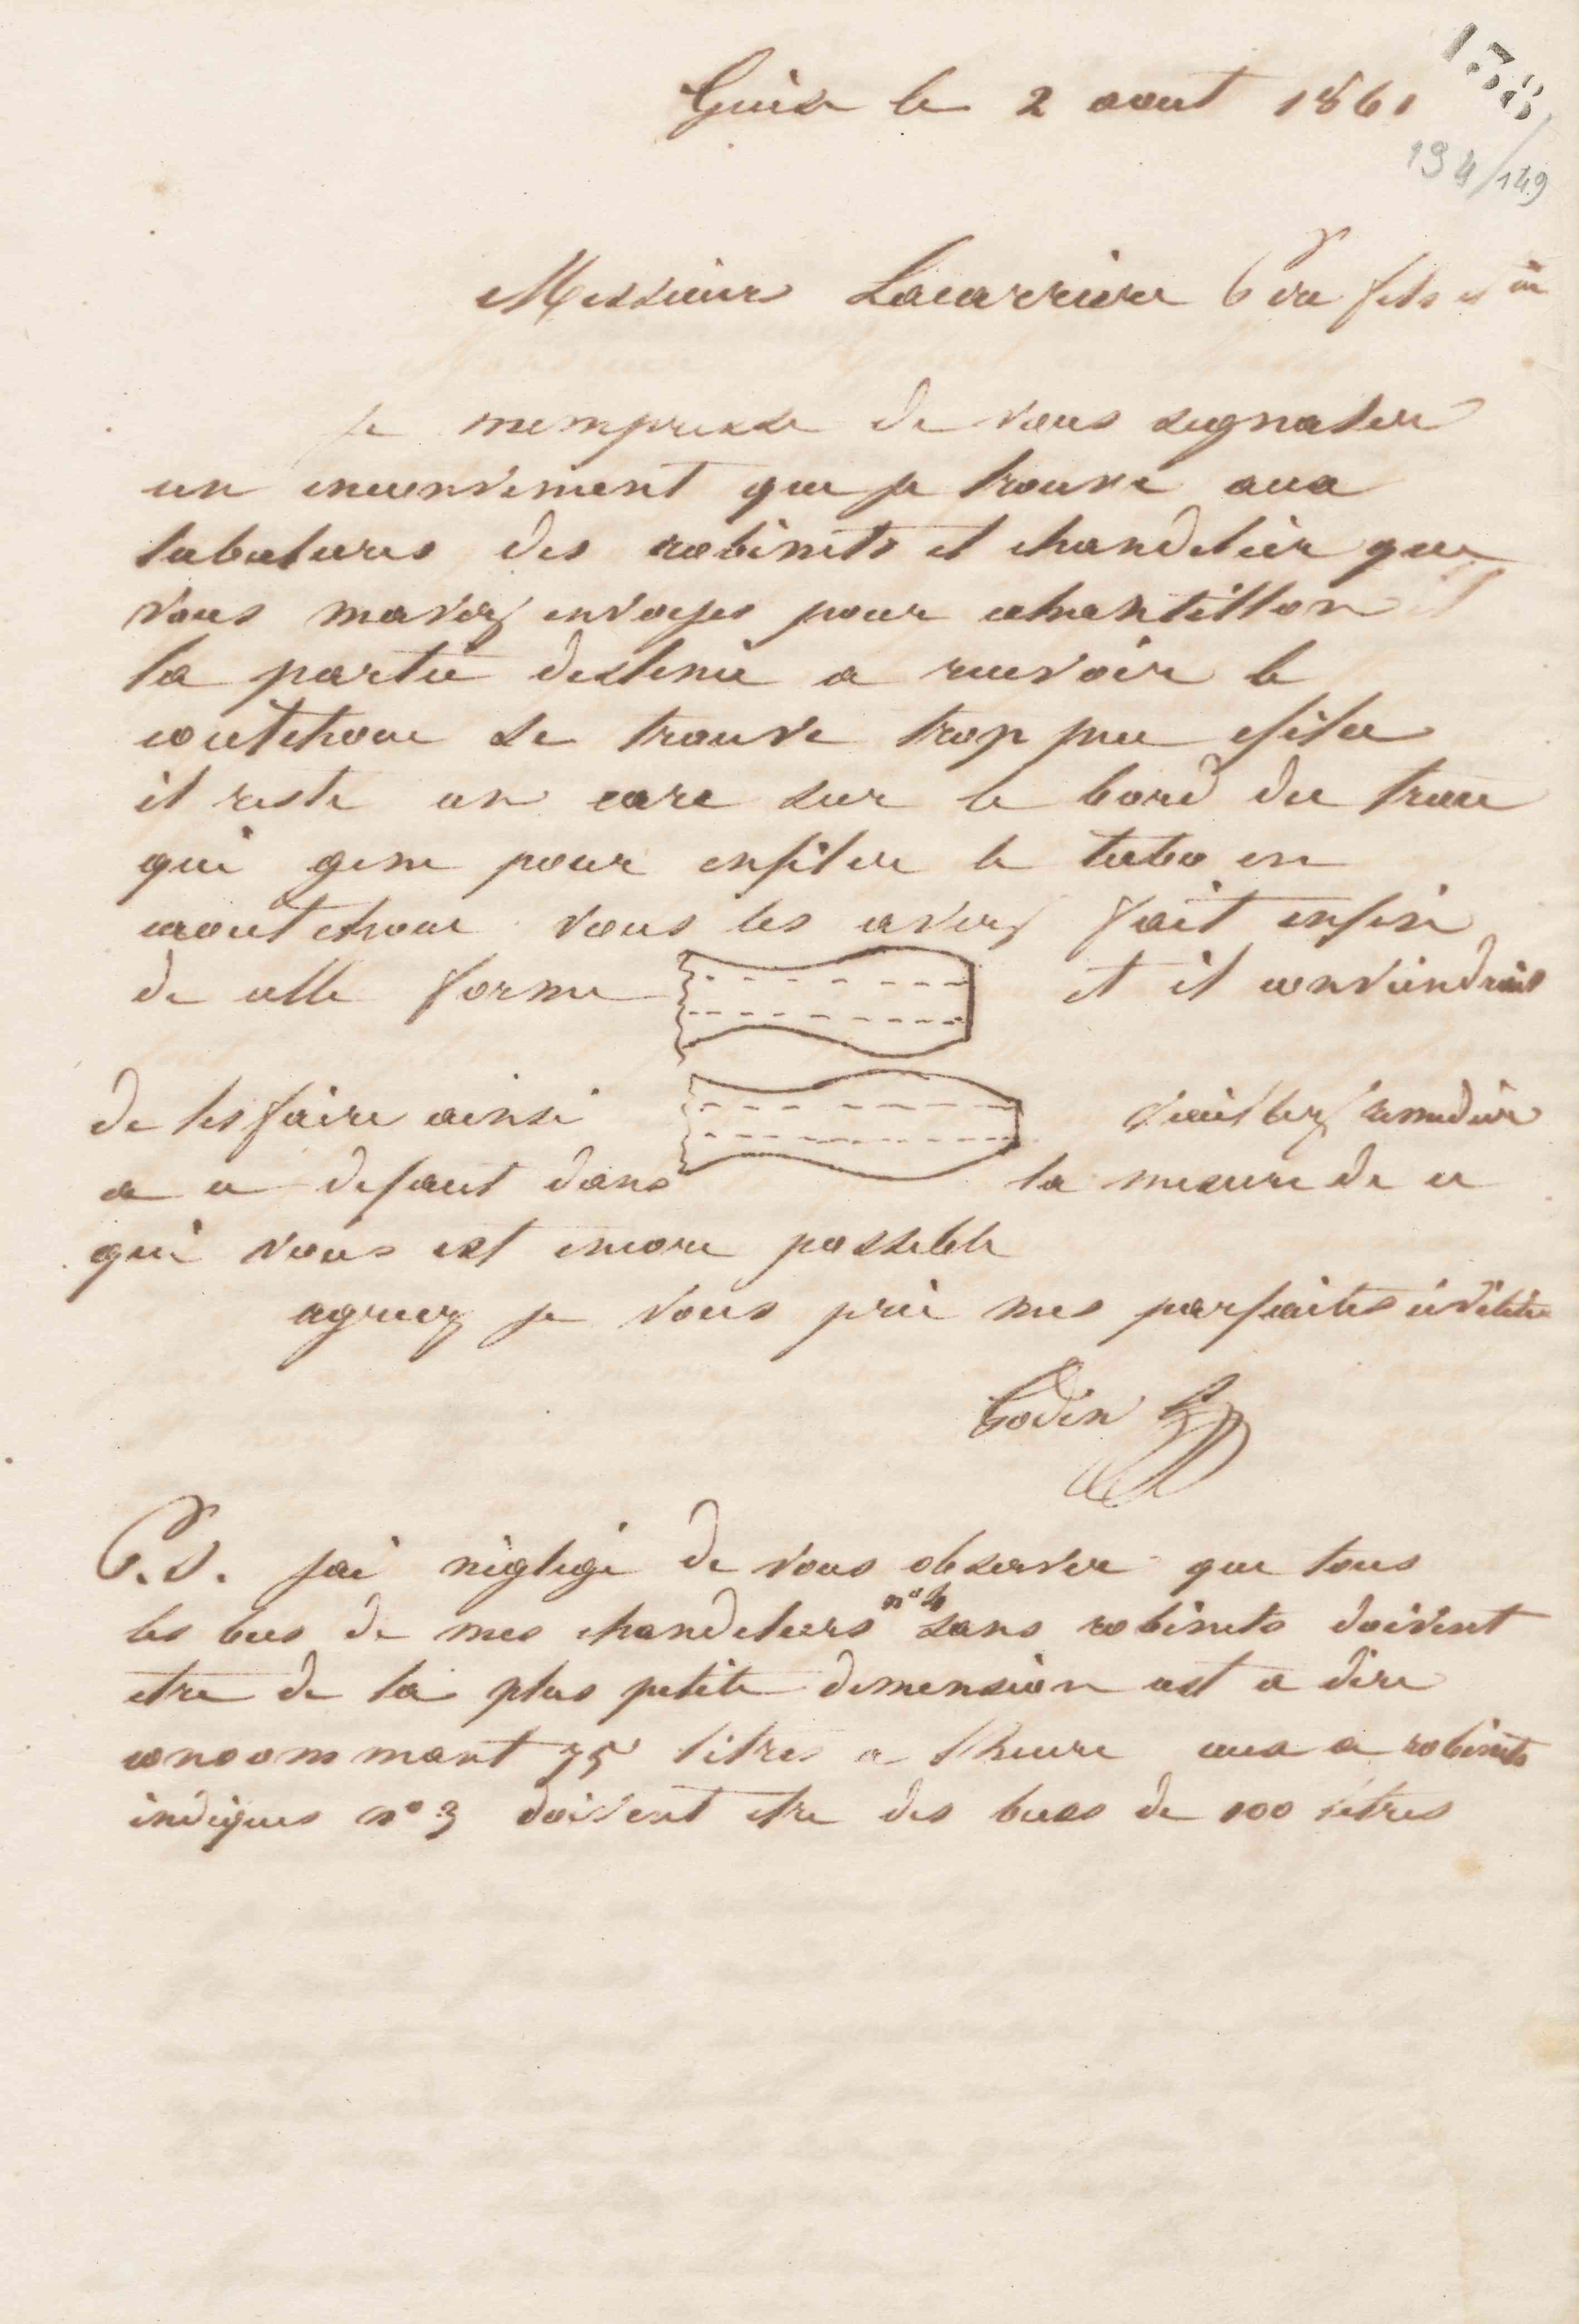 Guise le 2 aout 1861
158
194/149
Messieurs Lacarriere père fils et Cie
Je mempresse de vous signaler
un inconvenient que je trouve aux
tubulures des robinets et chandelier que
vous mavez envoyes pour echantillon
la partie destinée a recevoir le
coutchouc se trouve trop peu efilee
il reste un care sur le bord du trou
qui gene pour enfiler le tube en
caoutchouc vous les avez fait enfin
de cette forme et il conviendrait
de les faire ainsi veuillez remedier
a ce defaut dans la mesure de ce
qui vous est encore possible
agreez je vous prie mes parfaites civilités
Godin
P.S. jai négligé de vous observer que tous
les becs de mes chandeliers n° 4 sans robinets doivent
etre de la plus petite dimension cest a dire
consommant 75 litres a lheure ceux a robinets
indiques n° 3 doivent etre des becs de 100 litres